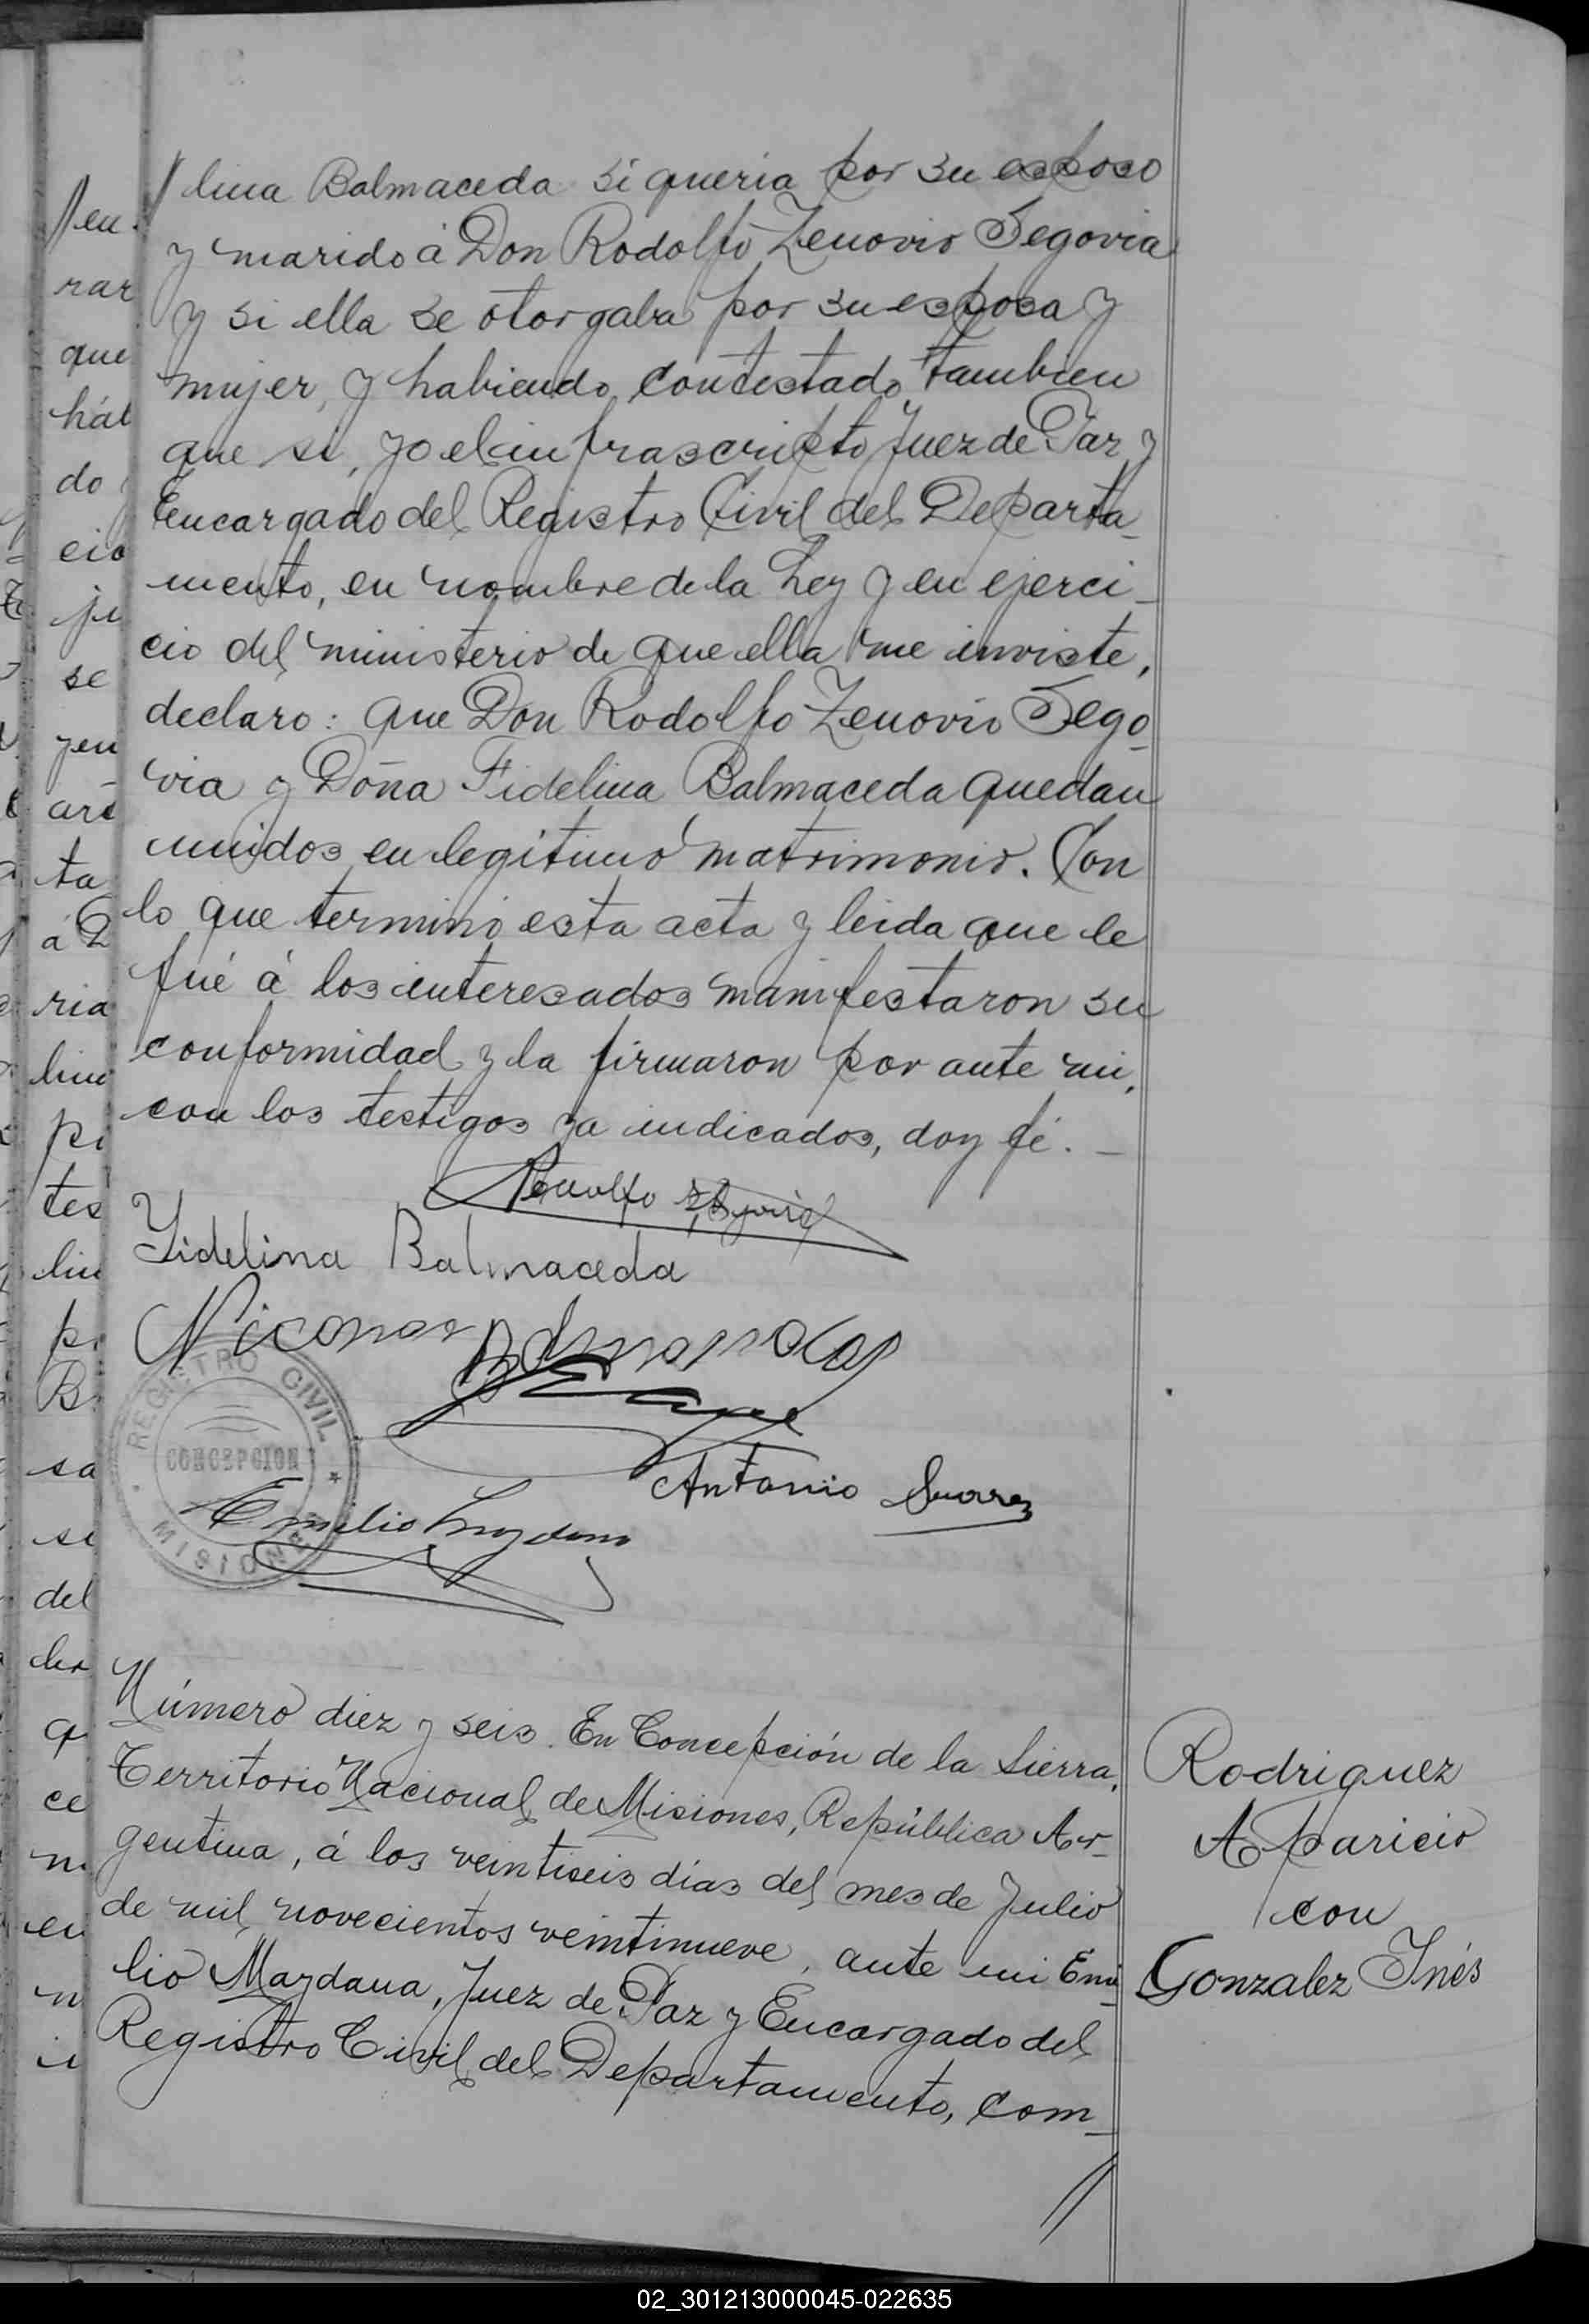 // lina Balmaceda si queria por su esposo
y marido á Don Rodolfo Zenovio Segovia
y si ella se otorgaba por su esposa y
mujer, y habiendo contestado tambien
que si, yo el infrascripto Juez de Paz y
Encargado del Registro Civil del Departa_
mento, en nombre de la Ley y en ejerci_
cio del ministerio de que ella me inviste,
declaro: que Don Rodolfo Zenovio Sego_
via y Doña Fidelina Balmaceda quedan
unidos en legítimo matrimonio. Con
lo que terminó esta acta y leida que le
fué á los interesados manifestaron su
conformidad y la firmaron por ante mi,
con los testigos ya indicados, doy fé. _
Rodolfo Z. Segovia
Fidelina Balmaceda
Nicanor
Antonio Suarez
REGISTRO CIVIL
CONCEPCION
MISIONES
Emilio Mazdana
Número diez y seis. En Concepción de la Sierra,
Territorio Nacional de Misiones, República Ar_
gentina, á los veintiseis días del mes de Julio
de mil novecientos veintinueve, ante mi Emi_
lio Mazdana, Juez de Paz y Encargado del
Registro Civil del Departamento, com_
//
Rodriguez
Aparicio
con
Gonzalez Inés
//en
rar
que
do
cio
se
yen
ta
ria
pi
tes
lin
sa
del
ce
en
02_301213000045-022635